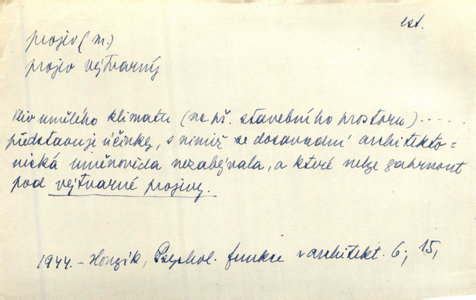 est.
projev (m.)
projev výtvarný
Vliv umělého klimatu (na př. stavebního prostoru) .....
představuje účinky, s nimiž se dosavadní architekto=
nická uměnověda nezabývala, a které nelze zahrnout
pod výtvarné projevy.
1944. - Honzík, Psychol. funkce v architekt. 6; 15,